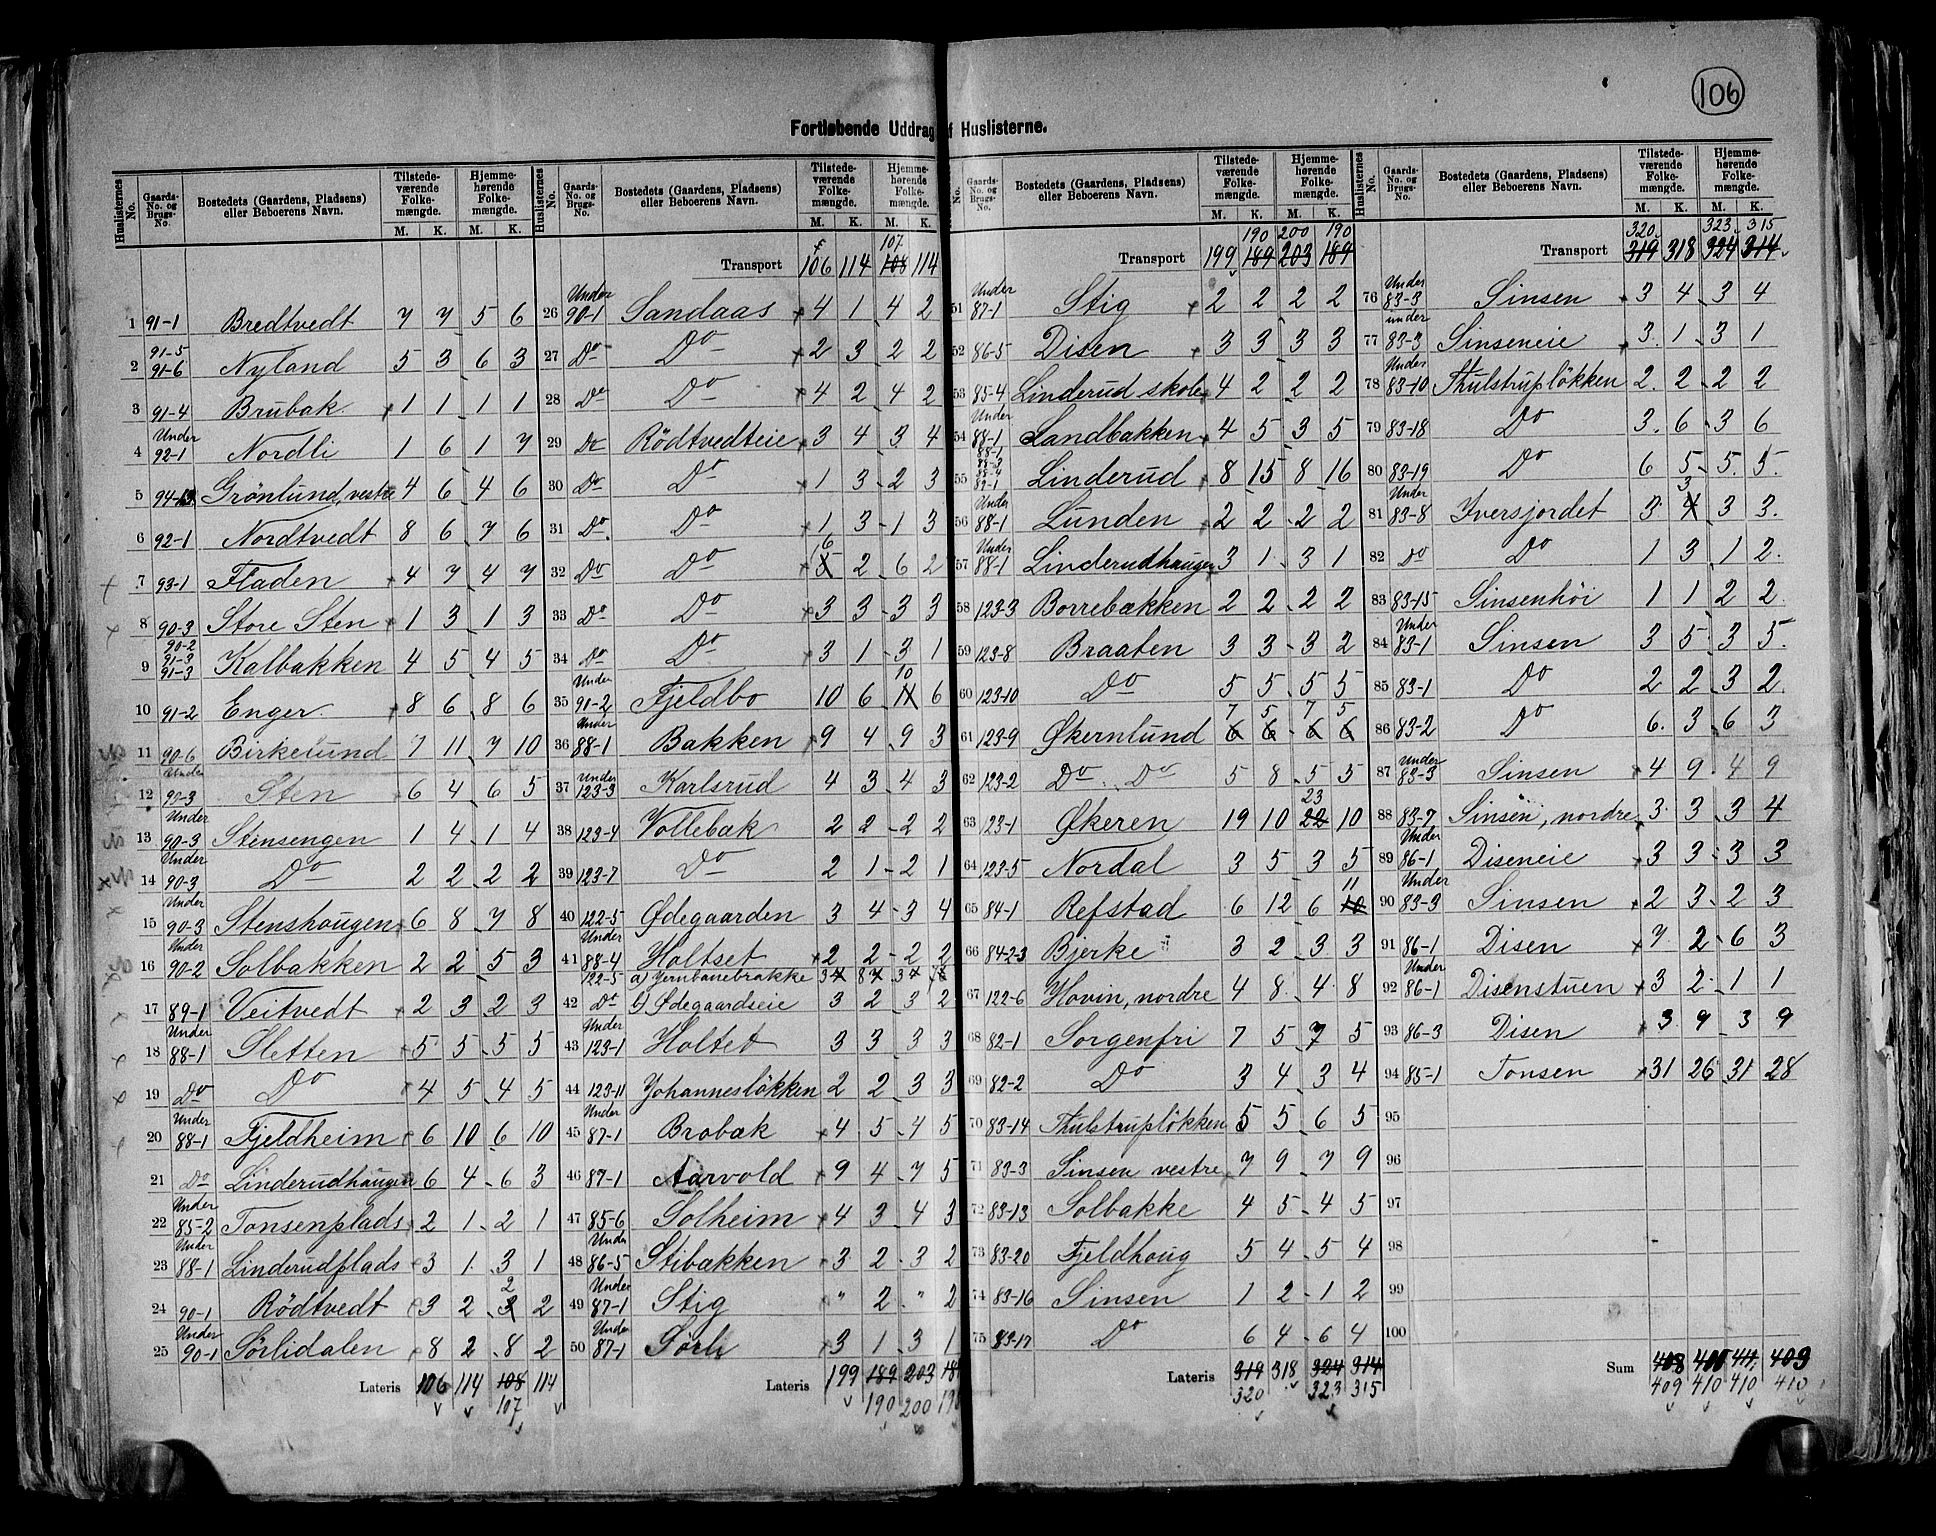 106
Fortløbende Uddrag af Huslisterne.
Huslisternes No. Gaards-No. og Brugs-No. Bostedets (Gaardens, Pladsens) eller Beboerens Navn. Tilstedeværende Folkemængde. M. K. Hjemmehørende Folkemængde. M. K.
1 91-1 Bredtvedt 7 7 5 6
2 91-5 91-6 Nyland 5 3 6 3
3 91-4 Brubak 1 1 1 1
4 Under 92-1 Nordli 1 6 1 7
5 94-13 Grönlund, vestre 4 6 4 6
6 92-1 Nordtvedt 8 6 7 6
7 93-1 Fladen 4 7 4 7
8 90-3 Store Sten 1 3 1 3
9 90-2 91-3 91-3 Kalbakken 4 5 4 5
10 91-2 Enger 8 6 8 6
11 90-6 Birkelund 7 11 7 10
12 Under 90-3 Sten 6 4 6 5
13 Under 90-3 Stensengen 1 4 1 4
14 Under 90-3 Do 2 2 2 2
15 Under 90-3 Stenshougen 6 8 7 8
16 Under 90-2 Solbakken 2 2 5 3
17 89-1 Veitvedt 2 3 2 3
18 Under 88-1 Sletten 5 5 5 5
19 Do Do 4 5 4 5
20 Under 88-1 Fjeldheim 6 10 6 10
21 Do Linderudhaugen 6 4 6 3
22 Under 85-2 Tonsenplads 2 1 2 1
23 Under 88-1 Linderudplads 3 1 3 1
24 90-1 Rödtvedt 3 2 3 2 2
25 Under 90-1 Sörlidalen 8 2 8 2
Lateris 106 114 108 114
107
Huslisternes No. Gaards-No. og Brugs-No. Bostedets (Gaardens, Pladsens) eller Beboerens Navn. Tilstedeværende Folkemængde. M. K. Hjemmehørende Folkemængde. M. K.
107
Transport 106 114 108 114
26 Under 90-1 Sandaas 4 1 4 2
27 Do Do 2 3 2 2
28 Do Do 4 2 4 2
29 Do Rödtvedteie 3 4 3 4
30 Do Do 1 3 2 3
31 Do Do 1 3 1 3
32 Do Do 6 5 2 6 2
33 Do Do 3 3 3 3
34 Do Do 3 1 3 1
35 Under 91-2 Fjeldbo 10 6 10 11 6
36 Under 88-1 Bakken 9 4 9 3
37 Under 123-3 Karlsrud 4 3 4 3
38 123-4 Vollebak 2 2 2 2
39 123-7 Do 2 1 2 1
40 122-5 Ødegaarden 3 4 3 4
41 Under 88-4 Holtset 2 2 2 2
122-5 a) Jernbanebrakke
42 Do b) Ødegaardseie 3 2 3 2
43 Under 123-1 Holtet 3 3 3 3
44 123-11 Johannesløkken 2 2 3 3
45 Under 87-1 Brobak 4 5 4 5
46 87-1 Aarvold 9 4 7 5
47 85-6 Solheim 4 3 4 3
48 Under 86-5 Stibakken 3 2 3 2
49 Under 87-1 Stig " 2 " 2
50 Under 87-1 Sörli 3 1 3 1
Lateris 199 189 203
190 200
No. Gaards-No. og Brugs-No. Bostedets (Gaardens, Pladsens) eller Beboerens Navn. Tilstedeværende Folkemængde. M. K. Hjemmehørende Folkemængde. M. K.
190 200 190
Transport 199 189 203 189
51 Under 87-1 Stig 2 2 2 2
52 86-5 Disen 3 3 3 3
53 85-4 Linderud skole 4 2 2 2
54 Under 88-1 Sandbakken 4 5 3 5
55 88-1 88-3 88-4 89-1 Linderud 8 15 8 16
56 Under 88-1 Lunden 2 2 2 2
57 Under 88-1 Linderudhaugen 3 1 3 1
58 123-3 Borrebækken 2 2 2 2
59 123-8 Braaten 3 3 3 2
60 123-10 Do 5 5 5 5
7 5 7 5
61 123-9 Økernlund 6 6 6 6
62 123-2 Do Do 5 8 5 5
63 123-1 Økeren 19 10 23 22 10
64 123-5 Nordal 3 5 3 5
65 84-1 Refstad 6 12 6 11 10
66 84-2-3 Bjerke 3 2 3 3
67 122-6 Hovin, nordre 4 8 4 8
68 82-1 Sorgenfri 7 5 7 5
69 82-2 Do 3 4 3 4
70 83-14 Thulstrupløkken 5 5 6 5
71 83-3 Sinsen vestre 7 9 7 9
72 83-13 Solbakke 4 5 4 5
73 83-20 Fjeldhoug 5 4 5 4
74 83-16 Sinsen 1 2 1 2
75 83-17 Do 6 4 6 4
Lateris 319 318 324 314
320 323 315
Huslisternes No. Gaards-No. og Brugs-No. Bostedets (Gaardens, Pladsens) eller Beboerens Navn. Tilstedeværende Folkemængde. M. K. Hjemmehørende Folkemængde. M. K.
320 323 315
Transport 319 318 324 314
76 Under 83-3 Sinsen 3 4 3 4
77 under 83-3 Sinseneie 3 1 3 1
78 Under 83-10 Thulstrupløkken 2 2 2 2
79 83-18 Do 3 6 3 6
80 83-19 Do 6 5 5 5
81 Under 83-8 Iversjordet 3 3 4 3 3
82 Do Do 1 3 1 2
83 83-15 Sinsenhöi 1 1 2 2
84 Under 83-1 Sinsen 3 5 3 5
85 83-1 Do 2 2 3 2
86 83-2 Do 6 3 6 3
87 Under 83-3 Sinsen 4 9 4 9
88 83-7 Sinsen, nordre 3 3 3 4
89 Under 86-1 Diseneie 3 3 3 3
90 Under 83-3 Sinsen 2 3 2 3
91 86-1 Disen 7 2 6 3
92 Under 86-1 Disenstuen 3 2 1 1
93 86-3 Disen 3 9 3 9
94 85-1 Tonsen 31 26 31 28
95
96
97
98
99
100
Sum 408 409
409 410 410 410